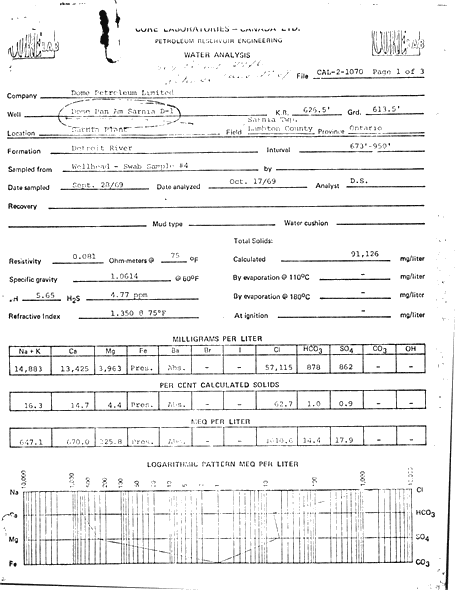 CORE LABORATORIES - CANADA LTD.
PETROLEUM RESERVOIR ENGINEERING
WATER ANALYSIS
File CAL-2-1070 Page 1 of 3
Company Dome Petroleum Limited
Well Dome Pan Am Sarnia D-1 K.B. 626.5' Grd. 613.5'
Sarnia Twp.
Location Sarnia Plant Field Lambton County Province Ontario
Formation Detroit River Interval 673'-950'
Sampled from Wellhead - Swab Sample #4 by
Date sampled Sept. 20/69 Date analyzed Oct. 17/69 Analyst D.S.
Recovery
Mud type Water cushion
Total Solids:
Resistivity 0.081 Ohm-meters @ 75 °F Calculated 91,126 mg/liter
Specific gravity 1.0614 @ 60°F By evaporation @ 110°C - mg/liter
pH 5.65 H2S 4.77 ppm By evaporation @ 180°C - mg/liter
Refractive Index 1.350 @ 75°F At ignition - mg/liter
MILLIGRAMS PER LITER
Na + K Ca Mg Fe Ba Br I Cl HCO3 SO4 CO3 OH
14,883 13,425 3,963 Pres. Abs. - - 57,115 878 862 - -
PER CENT CALCULATED SOLIDS
16.3 14.7 4.4 Pres. Abs. - - 62.7 1.0 0.9 - -
MEQ PER LITER
647.1 670.0 325.8 Pres. Abs. - - 1610.6 14.4 17.9 - -
LOGARITHMIC PATTERN MEQ PER LITER
10,000 1,000 500 200 100 50 20 10 5 1 10 100 1,000 10,000
Na Cl
Ca HCO3
Mg SO4
Fe CO3